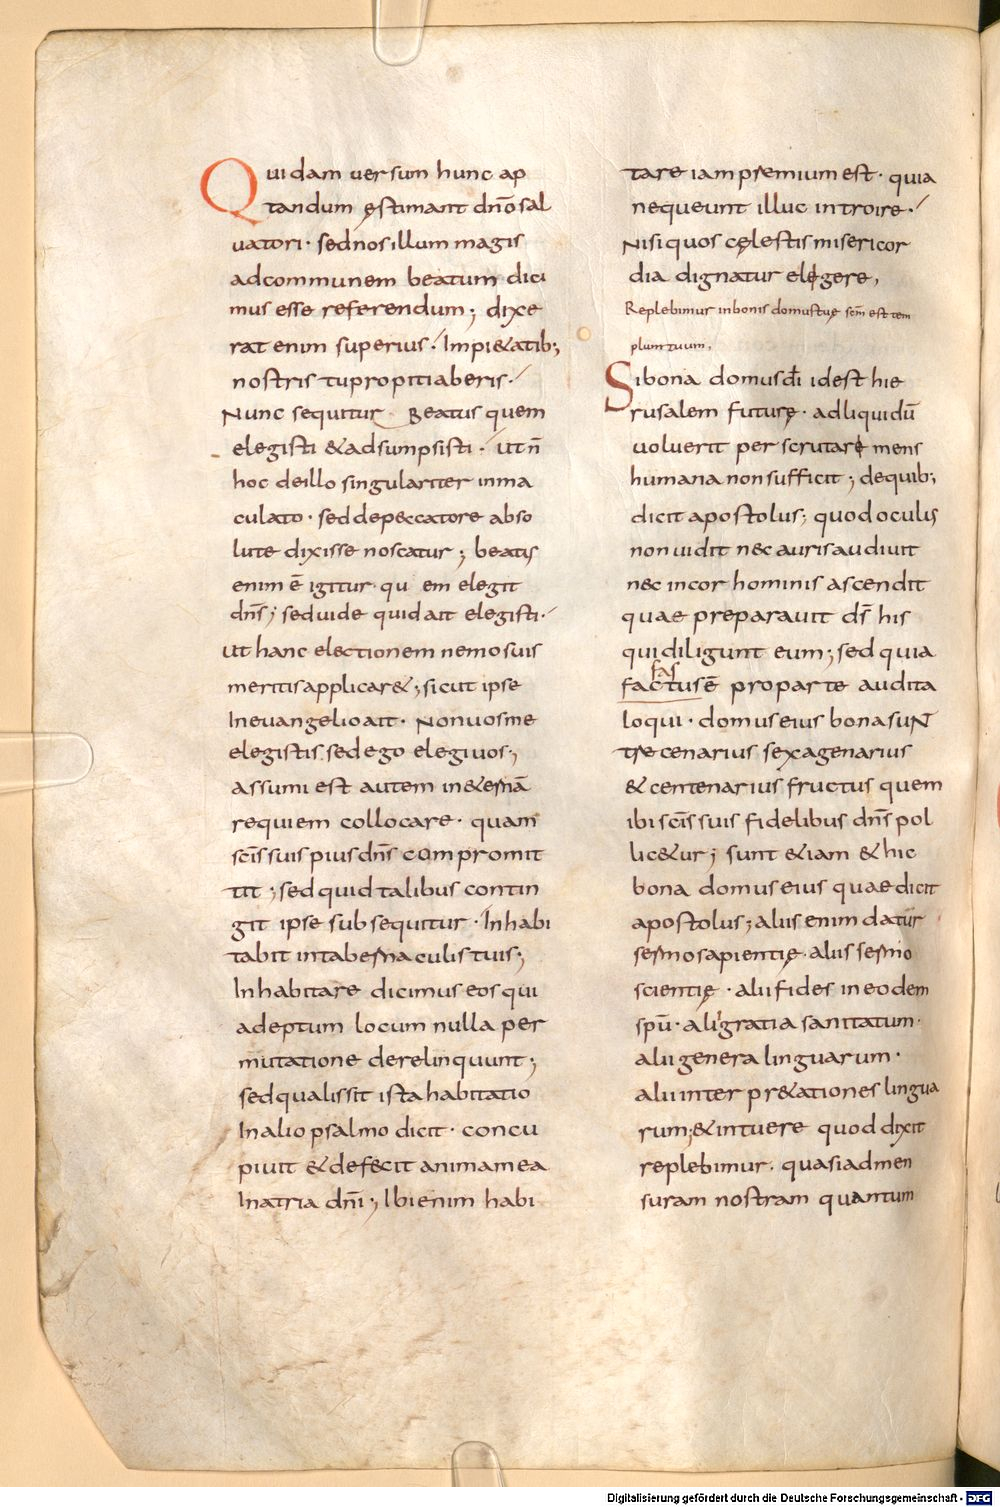 Quidam uersum hunc ap
tandum ęstimant dnō sal
uatori · sed nos illum magis
ad communem beatum dici
mus esse referendum; dixe
rat enim superius · Impi&atib;
nostris tu propitiaberis ·
Nunc sequitur Beatus quem
elegisti & adsumpsisti · ut n̄
hoc de illo singulariter inma
culato · sed de peccatore abso
lute dixisse noscatur; beatus
enim ē igitur · qu em elegit
dn̄s; sed uide quid ait elegisti ·
ut hanc electionem nemo suis
meritis applicar&; sicut ipse
In euangelio ait · Non uos me
elegistis. sed ego elegi uos;
assumi est autem in &ernā
requiem collocare · quam
scīs suis pius dn̄s compromit
tit; sed quid talibus contin
git ipse subsequitur · Inhabi
tabit in tabernaculis tuis;
Inhabitare dicimus eos qui
adeptum locum nulla per
mutatione derelinquunt;
sed qualis sit ista habitatio
In alio psalmo dicit · concu
piuit & defecit anima mea
In atria dn̄i; Ibi enim habi
tare iam premium est · quia
nequeunt illuc introire ·
Nisi quos cęlestis misericor
dia dignatur elegere,
Replebimur in bonis domus tuę scm̄ est tem
plum tuum,
Si bona domus dī id est hie
rusalem futurę · ad liquidū
uoluerit perscrutare mens
humana non sufficit; de quib;
dicit apostolus; quod oculis
non uidit nec auris audiuit
nec in cor hominis ascendit
quae preparauit ds̄ his
qui diligunt eum; sed quia
fas
factus ē pro parte audita
loqui · domus eius bona suNt
tricenarius sexagenarius
& centenarius fructus quem
ibi scīs suis fidelibus dn̄s pol
lic&ur; sunt &iam & hic
bona domus eius quae dicit
apostolus; aliis enim datur
sermo sapientię · aliis sermo
scientię · alii fides in eodem
spū · alii gratia sanitatum ·
alii genera linguarum ·
alii interpr&ationes lingua
rum; & intuere quod dixit
replebimur · quasi ad men
suram nostram quantum
Digitalisierung gefördert durch die Deutsche Forschungsgemeinschaft - DFG